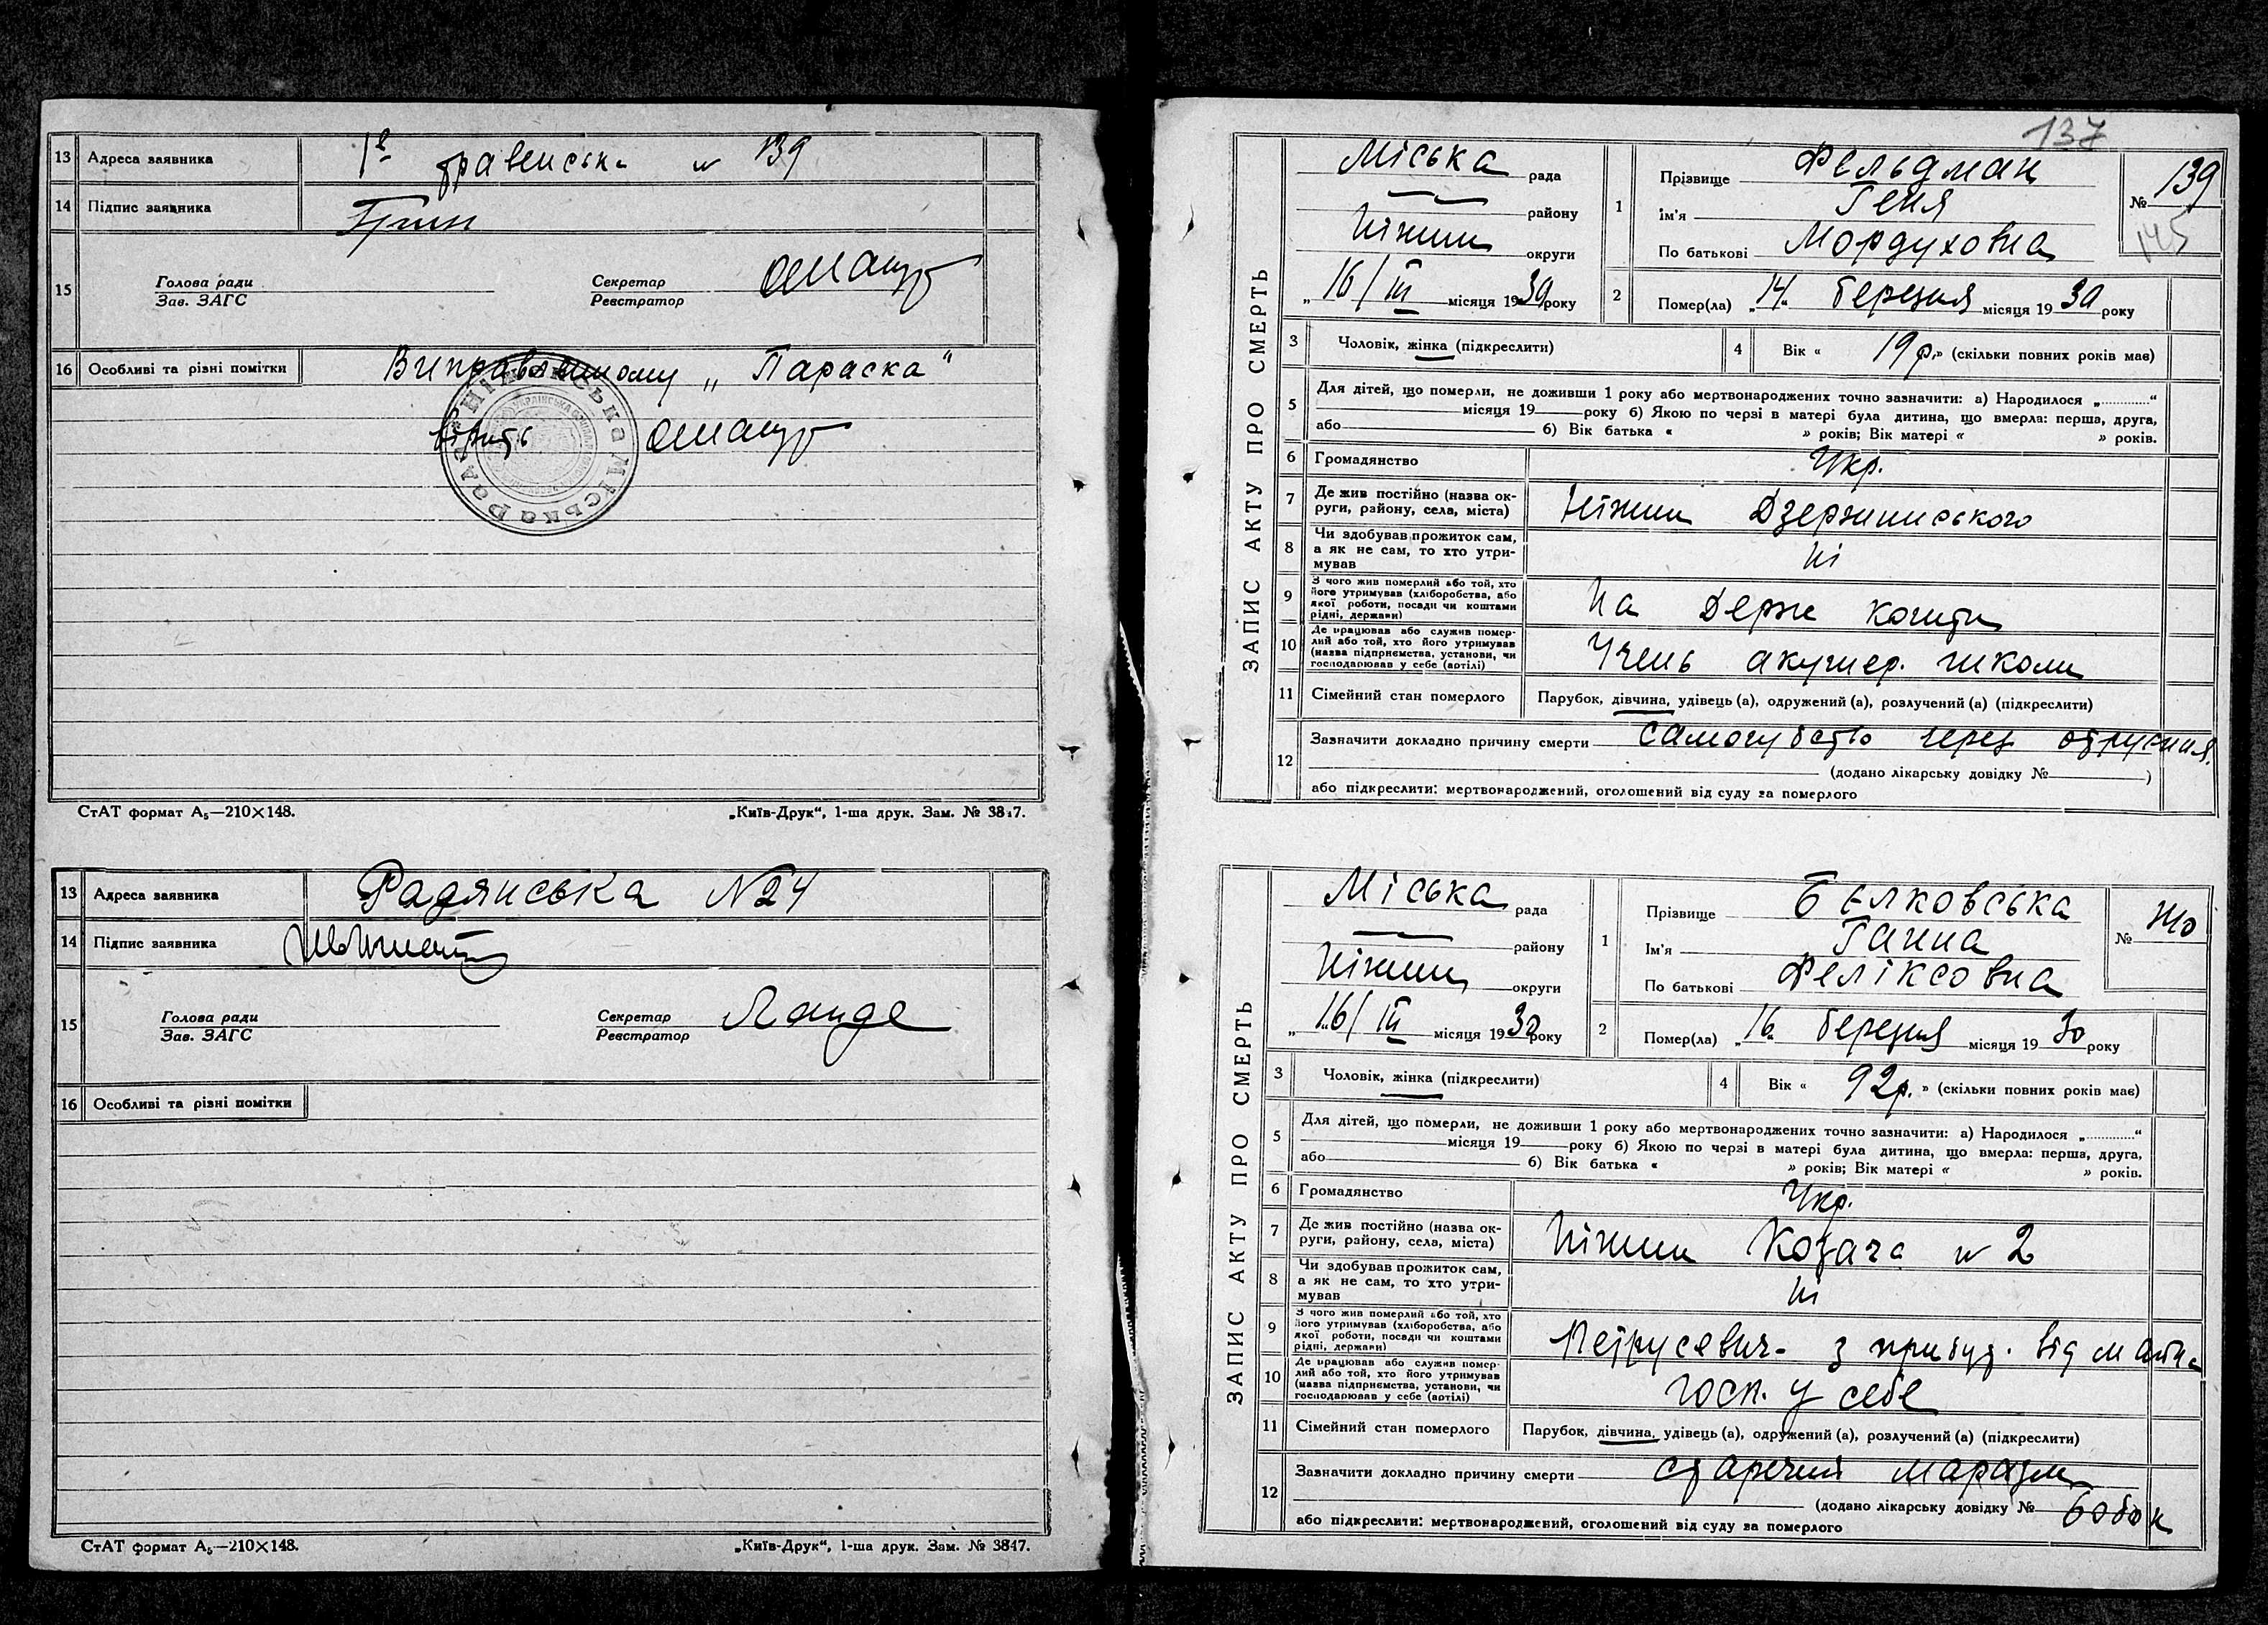 13 Адреса заявника 1го травенська № 139
14 Підпис заявника
15 Голова ради
Зав. ЗАГС
Секретар
Реєстратор
16 Особливі та різні помітки Виправленому „Параска“
вірить
Ніженська Міська Рада
СтАТ формат А₅—210×148. „Київ-Друк“, 1-ша друк. Зам. № 3847.
13 Адреса заявника Радянська №24
14 Підпис заявника
15 Голова ради
Зав. ЗАГС
Секретар
Реєстратор Ланде
16 Особливі та різні помітки
СтАТ формат А₅—210×148. „Київ-Друк“, 1-ша друк. Зам. № 3847.
137
ЗАПИС АКТУ ПРО СМЕРТЬ
Міська рада
району
Ніжин округи
„16/III місяця 1930 року
1 Прізвище Фельдман
Ім'я Геня
По батькові Мордуховна
№ 139
145
2 Помер(ла) „14“ березня місяця 1930 року
3 Чоловік, жінка (підкреслити)
4 Вік « 19 р.» (скільки повних років має)
5 Для дітей, що померли, не доживши 1 року або мертвонароджених точно зазначити: а) Народилося „............“
місяця 19 року б) Якою по черзі в матері була дитина, що вмерла: перша, друга,
або б) Вік батька « » років; Вік матері « » років.
6 Громадянство Укр.
7 Де жив постійно (назва округи, району, села, міста) Ніжин Дзержинського
8 Чи здобував прожиток сам,
а як не сам, то хто утримував Ні
9 З чого жив померлий або той, хто
його утримував (хліборобства, або
якої роботи, посади чи коштами
рідні, держави) На держ кошти
10 Де працював або служив померлий або той, хто його утримував
(назва підприємства, установи, чи
господарював у себе (артілі) Учень акушер. школи
11 Сімейний стан померлого Парубок, дівчина, удівець (а), одружений (а), розлучений (а) (підкреслити)
12 Зазначити докладно причину смерти самогубство через отруєння.
(додано лікарську довідку № )
або підкреслити: мертвонароджений, оголошений від суду за померлого
ЗАПИС АКТУ ПРО СМЕРТЬ
Міська рада
району
Ніжин округи
„16/III місяця 1930 року
1 Прізвище Бєлковська
Ім'я Ганна
По батькові Феліксовна
№ 140
2 Помер(ла) „16“ березня місяця 1930 року
3 Чоловік, жінка (підкреслити)
4 Вік « 92 р. » (скільки повних років має)
5 Для дітей, що померли, не доживши 1 року або мертвонароджених точно зазначити: а) Народилося „............“
місяця 19 року б) Якою по черзі в матері була дитина, що вмерла: перша, друга,
або б) Вік батька « » років; Вік матері « » років.
6 Громадянство Укр.
7 Де жив постійно (назва округи, району, села, міста) Ніжин Козача № 2
8 Чи здобував прожиток сам,
а як не сам, то хто утримував Ні
9 З чого жив померлий або той, хто
його утримував (хліборобства, або
якої роботи, посади чи коштами
рідні, держави) Петрусевич- з прибут. від
10 Де працював або служив померлий або той, хто його утримував
(назва підприємства, установи, чи
господарював у себе (артілі) госп. у себе
11 Сімейний стан померлого Парубок, дівчина, удівець (а), одружений (а), розлучений (а) (підкреслити)
12 Зазначити докладно причину смерти старечий маразм
(додано лікарську довідку №
або підкреслити: мертвонароджений, оголошений від суду за померлого